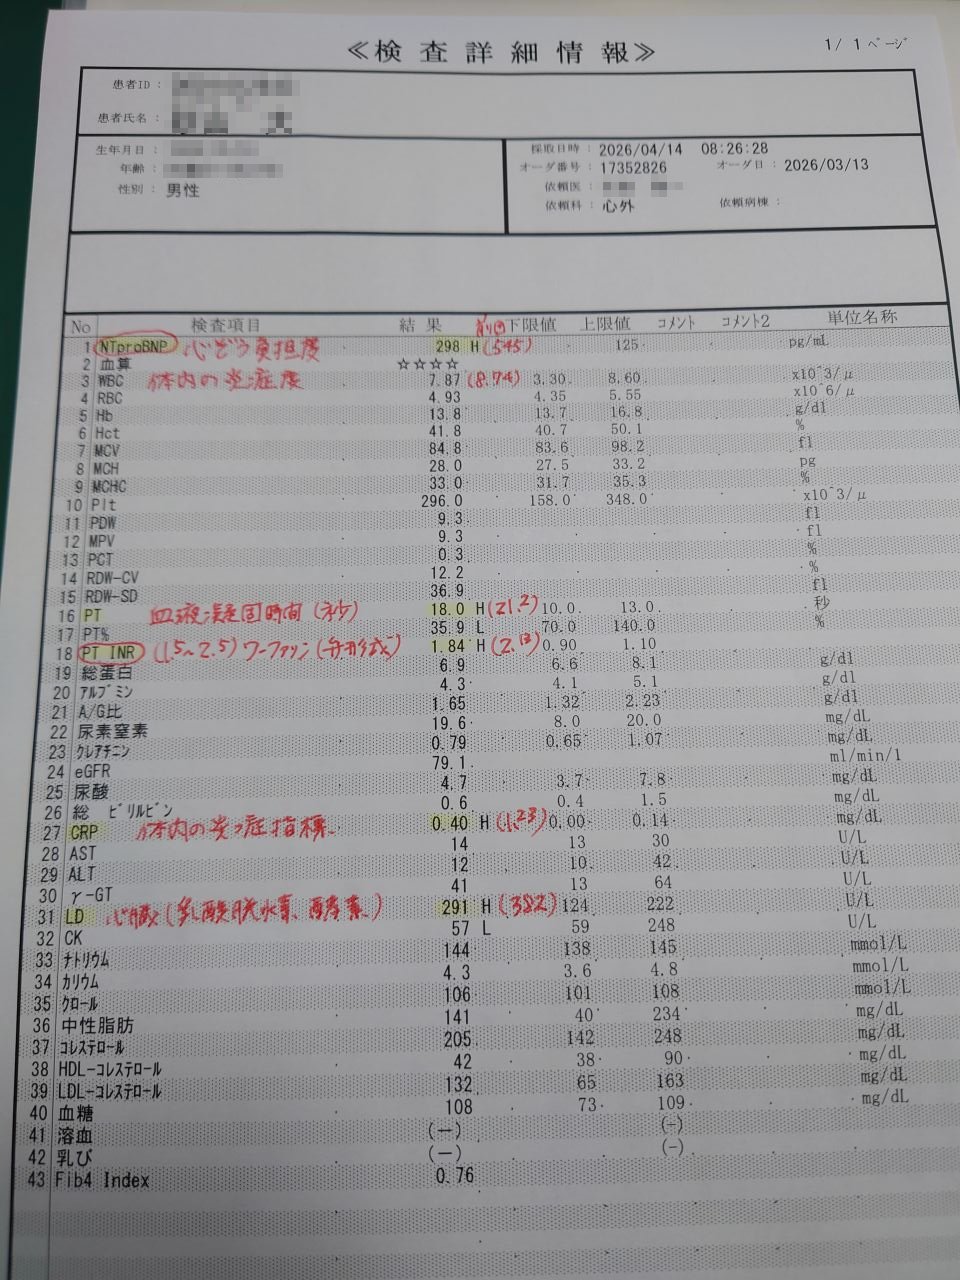 ≪検査詳細情報≫
1/ 1ページ
患者ID：
患者氏名：
生年月日：
年齢：
性別：男性
採取日時：2026/04/14 08:26:28
オーダ番号：17352826 オーダ日：2026/03/13
依頼医：
依頼科：心外 依頼病棟：
No 検査項目 結果 前回 下限値 上限値 コメント コメント2 単位名称
1 NTproBNP 心ぞう負担度 298 H (545) 125 pg/mL
2 血算 ☆☆☆☆
3 WBC 体内の炎症度 7.87 (8.74) 3.30 8.60 x10^3/μ
4 RBC 4.93 4.35 5.55 x10^6/μ
5 Hb 13.8 13.7 16.8 g/dl
6 Hct 41.8 40.7 50.1 %
7 MCV 84.8 83.6 98.2 fl
8 MCH 28.0 27.5 33.2 pg
9 MCHC 33.0 31.7 35.3 %
10 Plt 296.0 158.0 348.0 x10^3/μ
11 PDW 9.3 fl
12 MPV 9.3 fl
13 PCT 0.3 %
14 RDW-CV 12.2 %
15 RDW-SD 36.9 fl
16 PT 血液凝固時間(秒) 18.0 H (21.2) 10.0 13.0 秒
17 PT% 35.9 L 70.0 140.0 %
18 PT INR (1.5~2.5) ワーファリン(弁形成) 1.84 H (2.13) 0.90 1.10
19 総蛋白 6.9 6.6 8.1 g/dl
20 アルブミン 4.3 4.1 5.1 g/dl
21 A/G比 1.65 1.32 2.23 g/dl
22 尿素窒素 19.6 8.0 20.0 mg/dL
23 クレアチニン 0.79 0.65 1.07 mg/dL
24 eGFR 79.1 ml/min/1
25 尿酸 4.7 3.7 7.8 mg/dL
26 総 ビリルビン 0.6 0.4 1.5 mg/dL
27 CRP 体内の炎症指標 0.40 H (1.23) 0.00 0.14 mg/dL
28 AST 14 13 30 U/L
29 ALT 12 10 42 U/L
30 γ-GT 41 13 64 U/L
31 LD 心臓(乳酸脱水素、酵素) 291 H (382) 124 222 U/L
32 CK 57 L 59 248 U/L
33 ナトリウム 144 138 145 mmol/L
34 カリウム 4.3 3.6 4.8 mmol/L
35 クロール 106 101 108 mmol/L
36 中性脂肪 141 40 234 mg/dL
37 コレステロール 205 142 248 mg/dL
38 HDL-コレステロール 42 38 90 mg/dL
39 LDL-コレステロール 132 65 163 mg/dL
40 血糖 108 73 109 mg/dL
41 溶血 (-) (-)
42 乳び (-) (-)
43 Fib4 Index 0.76